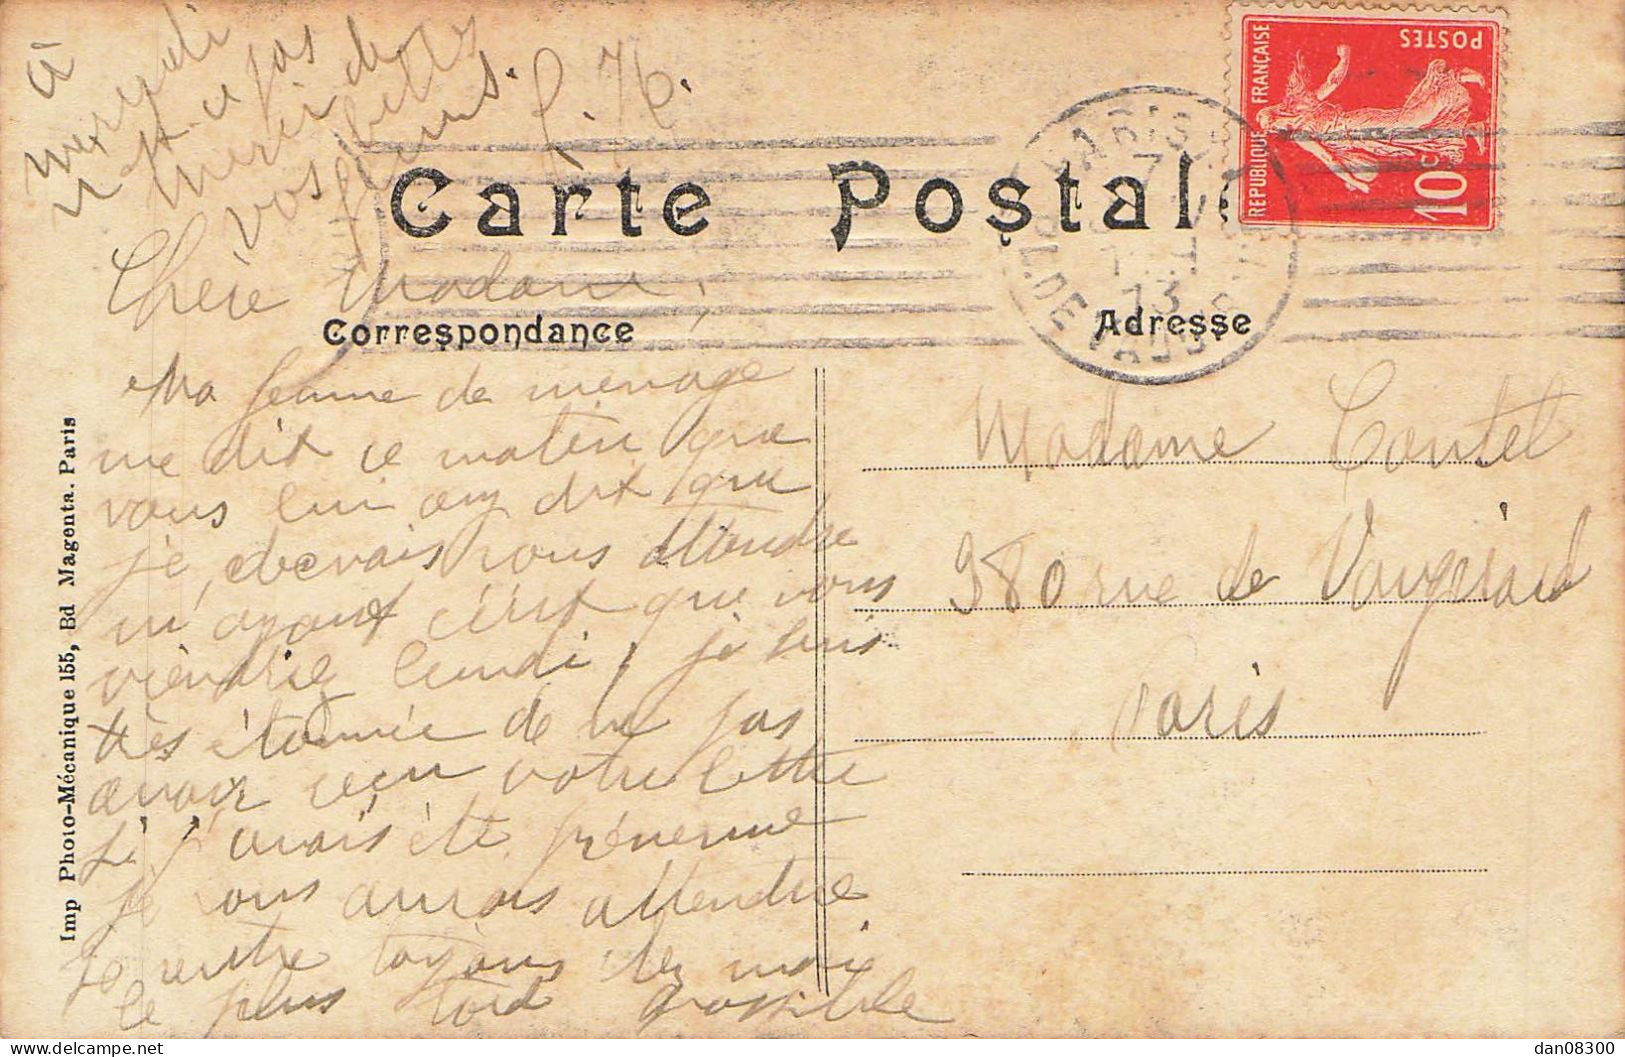 Carte Postale
Correspondance
Adresse
Imp Photo-Mécanique 155, Bd Magenta. Paris
REPUBLIQUE FRANÇAISE
POSTES
10c
PARIS
PL. DE VAUG
Chère Madame,
Ma femme de menage
me dit ce matin que
vous lui avez dit que
je devais vous attendre
m'ayant écrit que vous
viendriez lundi, je suis
très étonnée de ne pas
avoir reçu votre lettre
si j'avais été prévenue
je vous aurais attendue
je rentre toujours chez moi
le plus tard possible
à
mercredi
n'est ce pas
merci de
vos belles
fleurs.
Madame Coutel
380 rue de Vaugirard
Paris
dan08300